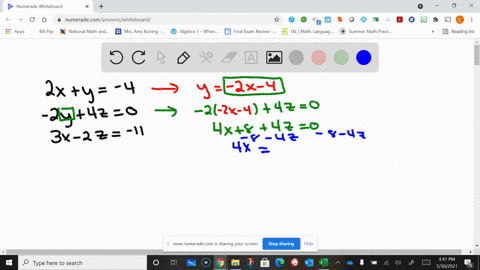 Numerade Whiteboard
numerade.com/answers/whiteboard/
Apps
Bill Pay
National Math and...
Amy Koning -...
Algebra 1 – Whenev...
Final Exam Review -...
IXL | Math, Language...
Summer Math Prac...
Reading list
2x + y = -4 → y = -2x-4
-2y + 4z = 0 → -2(-2x-4) + 4z = 0
3x - 2z = -11
4x + 8 + 4z = 0
-8 - 4z -8 - 4z
4x =
www.numerade.com is sharing your screen.
Stop sharing
Hide
Type here to search
4:47 PM
5/30/2021